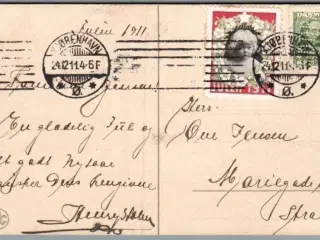 Julen 1911
KJØBENHAVN
24.12.11.4-5 F
Ø.
KJØBENHAVN
24.12.11.4-5 F
Ø.
JULEN 1911
En glædelig Jul og
et godt Nytaar
ønsker Deres hengivne
Henry
Herr
Ove Jensen
Mariegade